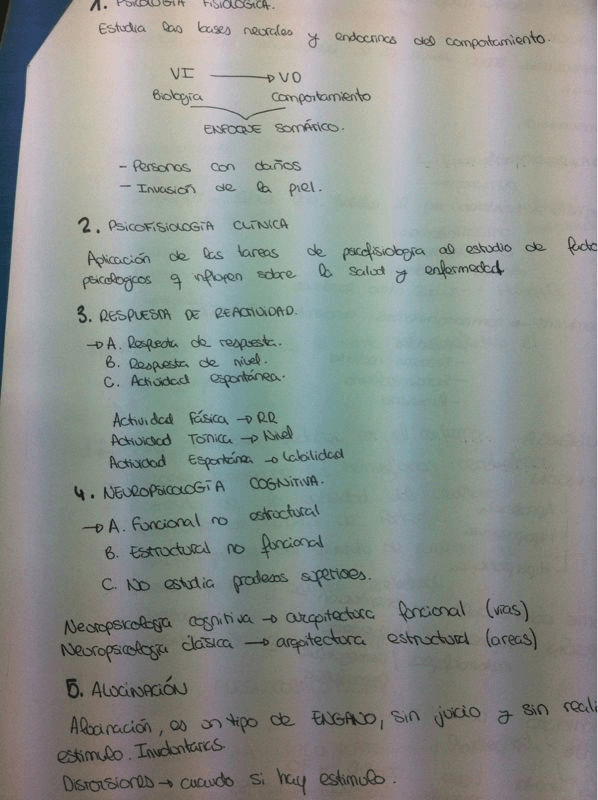 1. PSICOLOGÍA FISIOLÓGICA.
Estudia las bases neurales y endocrinas del comportamiento.
VI → VD
Biología comportamiento
ENFOQUE SOMÁTICO.
- Personas con daños
- Invasión de la piel.
2. PSICOFISIOLOGÍA CLINICA
Aplicación de las tareas de psicofisiología al estudio de facto
psicologicos q influyen sobre la salud y enfermedad
3. RESPUESTA DE REACTIVIDAD.
→ A. Respuesta de respuesta.
B. Respuesta de nivel.
C. Actividad espontánea.
Actividad Fásica → RR
Actividad Tónica → Nivel
Actividad Espontánea → Labilidad
4. NEUROPSICOLOGÍA COGNITIVA.
→ A. Funcional no estructural
B. Estructural no funcional
C. No estudia procesos superiores.
Neuropsicología cognitiva → arquitectura funcional (vías)
Neuropsicología clásica → arquitectura estructural (areas)
5. ALUCINACIÓN
Alucinación, es un tipo de ENGAÑO, sin juicio y sin reali
estimulo. Involuntarias.
Distorsiones → cuando si hay estimulo.